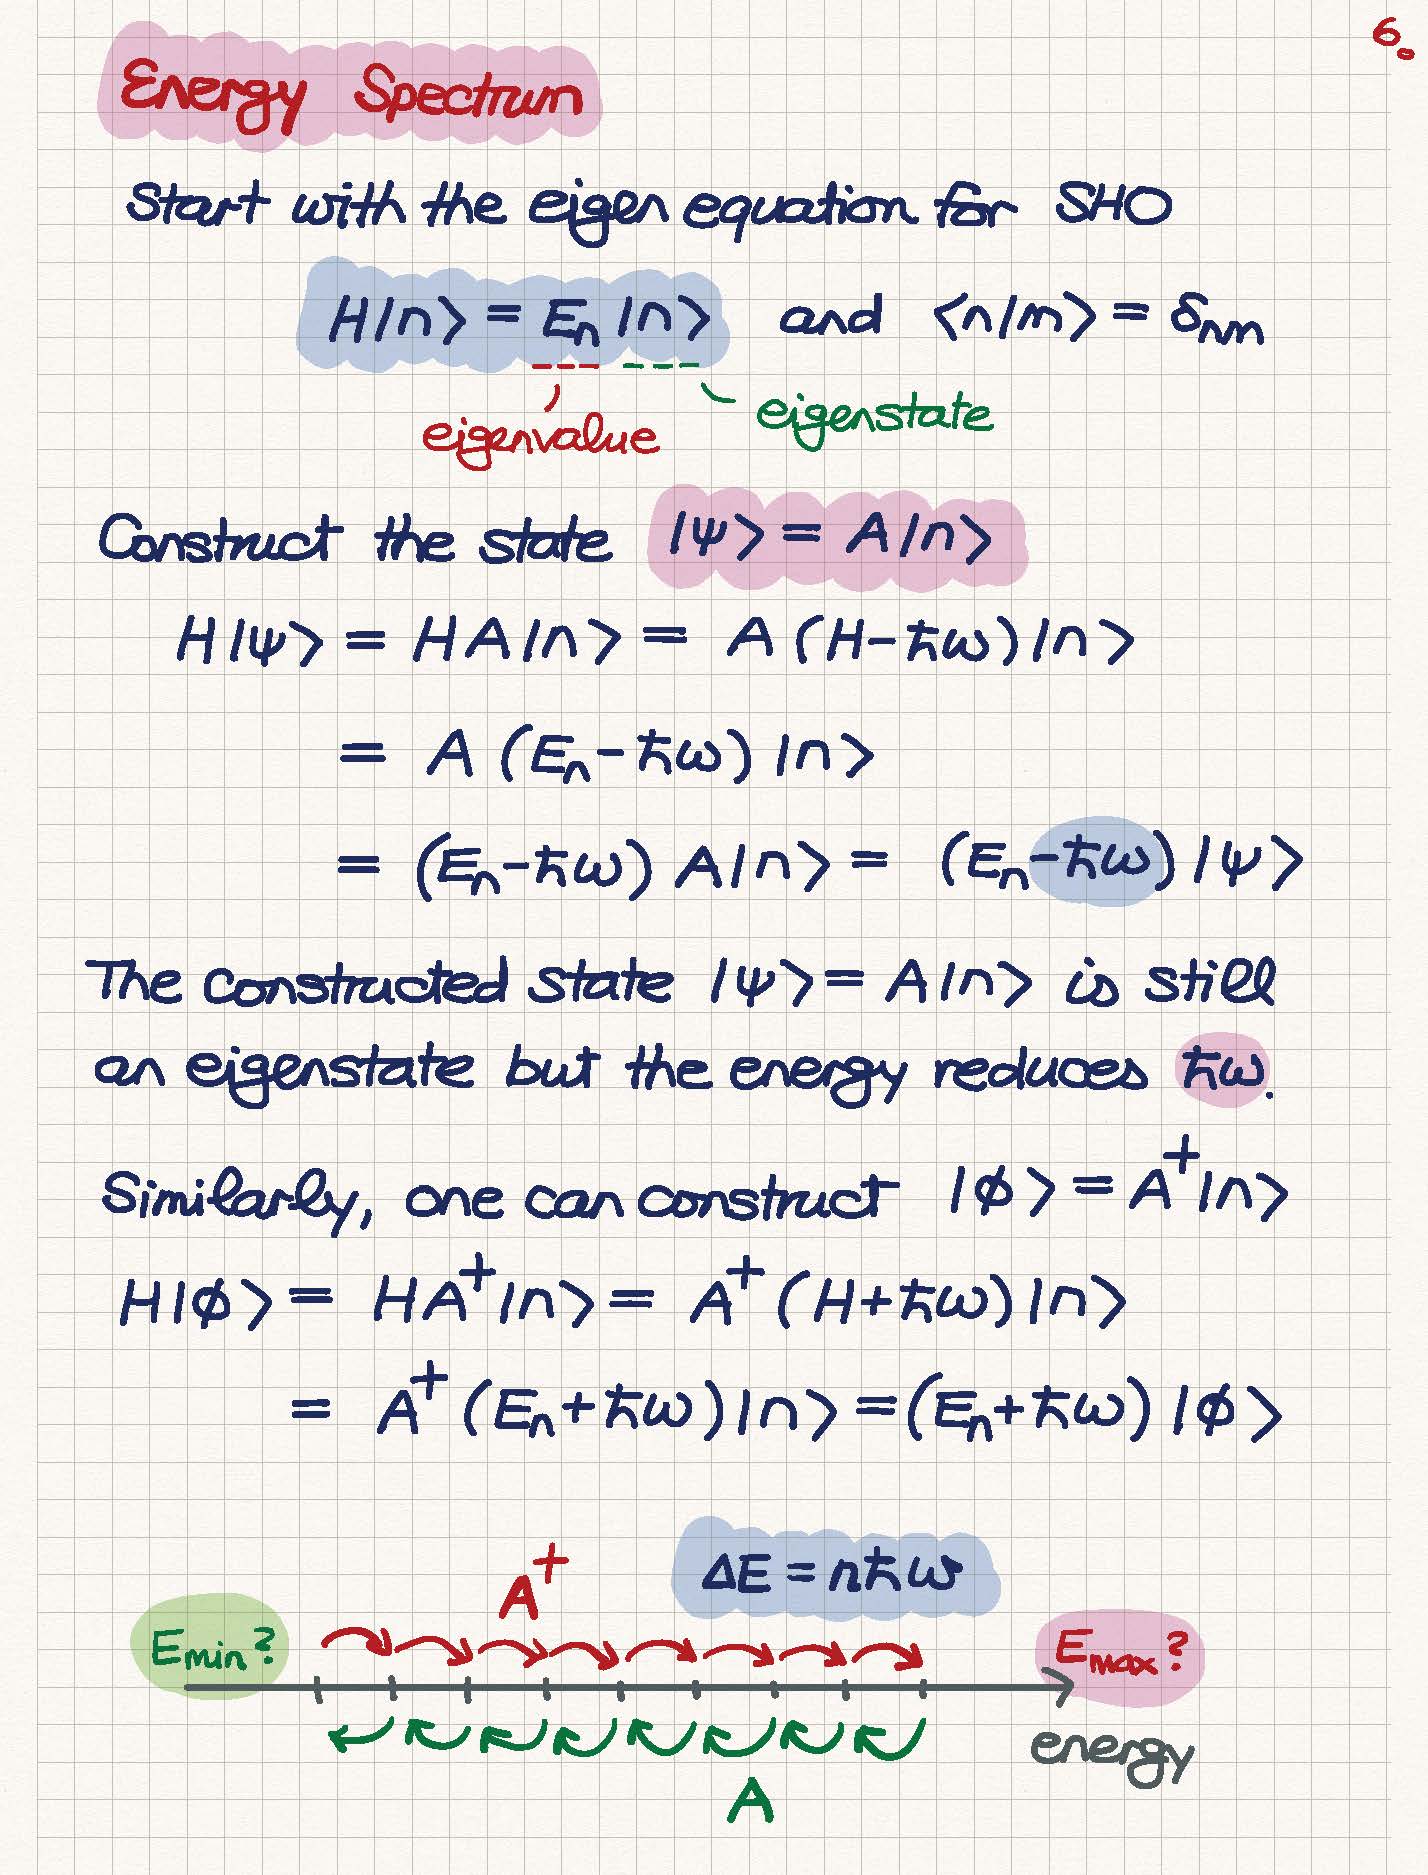 6.
Energy Spectrum
Start with the eigen equation for SHO
H|n⟩ = Eₙ|n⟩ and ⟨n|m⟩ = δₙₘ
eigenvalue eigenstate
Construct the state |ψ⟩ = A|n⟩
H|ψ⟩ = HA|n⟩ = A(H-ℏω)|n⟩
= A(Eₙ-ℏω)|n⟩
= (Eₙ-ℏω)A|n⟩ = (Eₙ-ℏω)|ψ⟩
The constructed state |ψ⟩ = A|n⟩ is still
an eigenstate but the energy reduces ℏω.
Similarly, one can construct |ϕ⟩ = A⁺|n⟩
H|ϕ⟩ = HA⁺|n⟩ = A⁺(H+ℏω)|n⟩
= A⁺(Eₙ+ℏω)|n⟩ = (Eₙ+ℏω)|ϕ⟩
ΔE = nℏω
A⁺
Emin? Emax?
energy
A